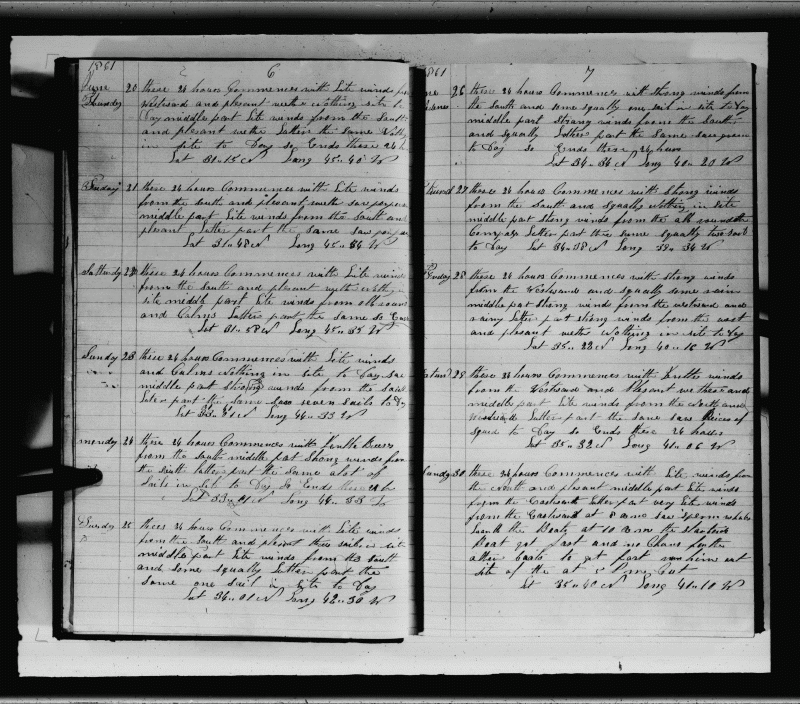 1861
6
June 20 these 24 hours Commences with Lite winds from
Thursday Westward and plesant wether Nothing site to
Day middle part Lite winds from the South
and plesant wether Latter the Same Nothing
in site to Day so Ends these 24 h
Lat 31"15 N Long 45"40 W
Friday 21 these 24 hours Commences with Lite winds
from the South and plesant with saw
middle part Lite winds from the South an
plesant Latter part the same saw
Lat 31"48 N Long 45"44 W
Satterdy 22 these 24 hours Commences with Lite winds
from the South and plesant with
site middle part Lite winds from all round
and Calms Latter part the same so
Lat 31"58 N Long 45"35 W
Sunday 23 these 24 hours Commences with Lite winds
and Calms Nothing in site to Day
middle part Strong winds from the South
Later part the same seven Sails to Dy
Lat 33"21 N Long 44"33 W
monday 24 these 24 hours Commences with
from the South middle part Strong winds from
the South latter part the Same alot of
Sails in site to Day So Ends these 24 h
Lat 33"01 N Long 44"33
25 these 24 hours Commences with Lite winds
from the South and plesant three sails in site
middle part Lite winds from the South
and some squally Latter part the
same one sail in site to Day
Lat 34"01 N Long 42"30 W
1861
7
26 these 24 hours Commences with Strong winds from
the South and some squally one sail in site to Day
middle part Strong winds from the South
and squally Latter part the Same saw
to Day so Ends these 24 hours
Lat 34"36 N Long 40"20 W
27 these 24 hours Commences with Strong winds
from the South and squally Nothing in site
middle part Strong winds from the all round the
Compass Latter part the same squally two sails
to Day Lat 34"38 N Long 39"34 W
Friday 28 these 24 hours Commences with Strong winds
from the Westward and squally some rain
middle part Strong winds from the westward and
rainy Latter part Strong winds from the west
and plesant wether Nothing in site to Day
Lat 35"22 N Long 40"16 W
29 these 24 hours Commences with winds
from the Westward and Plesant wether and
middle part Lite winds from the North and
Westward Latter part the same saw Pieces of
squid to Day so Ends these 24 hours
Lat 35"32 N Long 41"06 W
Sunday 30 these 24 hours Commences with Lite winds from
the North and plesant middle part Lite winds
from the Eastward Latter part very Lite winds
from the Eastward at 8 saw sperm whales
the Boats at 10 the Starbord
Boat got fast and no Chans for the
other boats to get fast him out
site of the at 5 Pm Cut
Lat 35"40 N Long 41"10 W